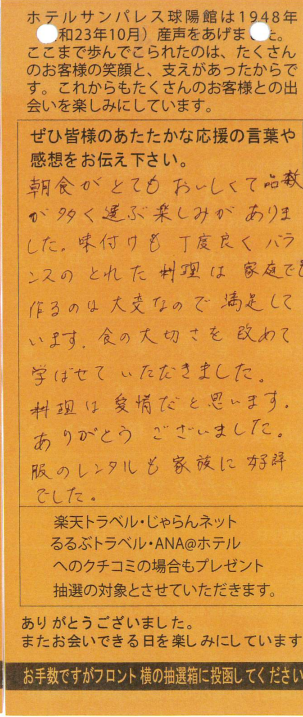 ホテルサンパレス球陽館は1948年
和23年10月）産声をあげま た。
ここまで歩んでこられたのは、たくさん
のお客様の笑顔と、支えがあったからで
す。これからもたくさんのお客様との出
会いを楽しみにしています。
ぜひ皆様のあたたかな応援の言葉や
感想をお伝え下さい。
朝食がとてもおいしくて品数
が多く選ぶ楽しみがありま
した。味付けも丁度良くバラ
ンスのとれた料理は家庭で
作るのは大変なので満足して
います。食の大切さを改めて
学ばせていただきました。
料理は愛情だと思います。
ありがとうございました。
服のレンタルも家族に好評
でした。
楽天トラベル・じゃらんネット
るるぶトラベル・ANA@ホテル
へのクチコミの場合もプレゼント
抽選の対象とさせていただきます。
ありがとうございました。
またお会いできる日を楽しみにしています
お手数ですがフロント横の抽選箱に投函してください